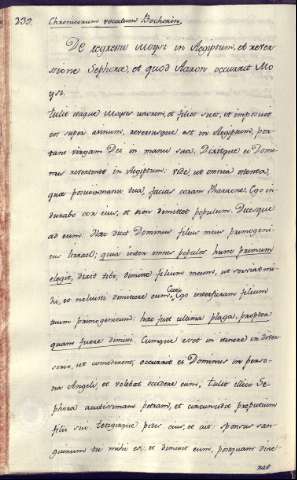 230. Chronicorum vocatum Bocherin.
De regressu Moysi in Aegiptum, et rever
sione Sephora, et quod Aaron occurrit Mo
ysi.
Tulit itaque Moyses uxorem, et filios suos, et imposuit
eos super asinum, reversusque est in Aegiptum, por
tans virgam Dei in manu sua. Dixitque ei Domi
nus revertenti in Aegiptum. Vide, ut omnia ostenta,
quae posui in manu tua, facias coram Pharaone. Ego in
durabo cor eius, et non dimittet populum. Dicesque
ad eum. Haec dicit Dominus filius meus primogeni
tus Israel; quia inter omnes populos hunc primum
elegit, dixit tibi, dimitte filium meum, ut serviat mi
hi, et noluisti dimittere eum, Ego interficiam filium
tuum primogenitum. haec fuit ultima plaga, propter
quam fuere dimissi. Cumque esset in itinere in diver
sorio, ut comederent, occurrit ei Dominus in perso
na Angeli, et volebat occidere eum, Tulit illico Se
phora acutissimam petram, et circumcidit preputium
filii sui tetigitque pedes eius, et ait sponsus san
guinum tu mihi es; et dimisit eum, postquam dixe
rat